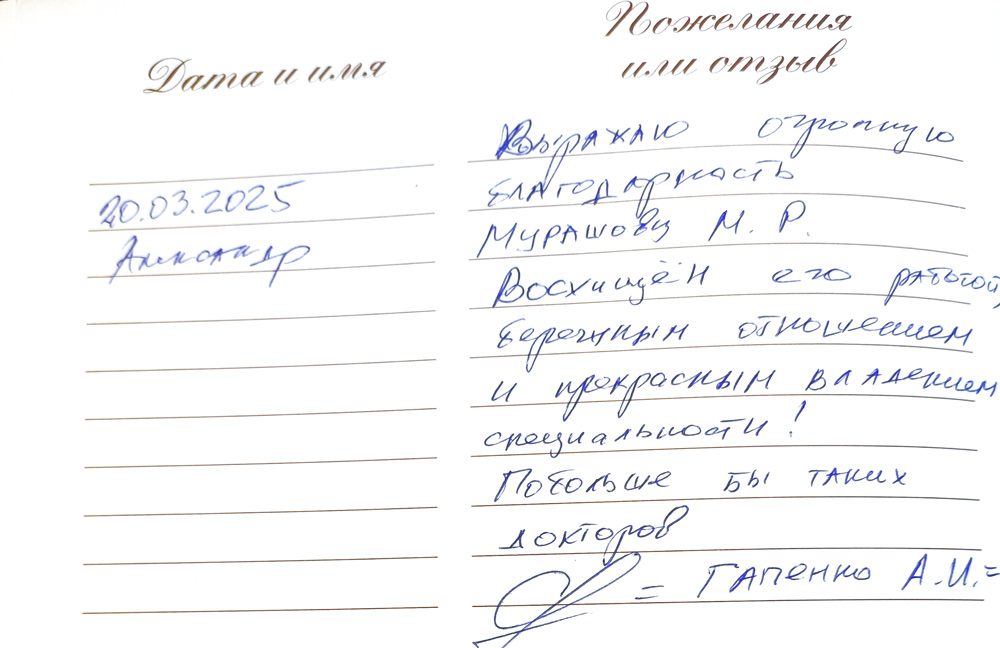 Дата и имя
Пожелания
или отзыв
20.03.2025
Александр
Выражаю огромную
благодарность
Мурашову М. Р.
Восхищён его работой,
бережным отношением
и прекрасным владением
специальности!
Побольше бы таких
докторов
= Гапенко А.И.=